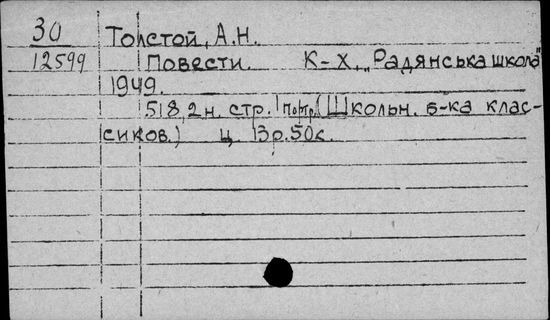 30 Толстой, А.Н.
12599 Повести. К-Х, „Радянська школа"
1949.
518,2н. стр. 1 портр. (Школьн. б-ка клас-
сиков.) ц. 13р.50к.